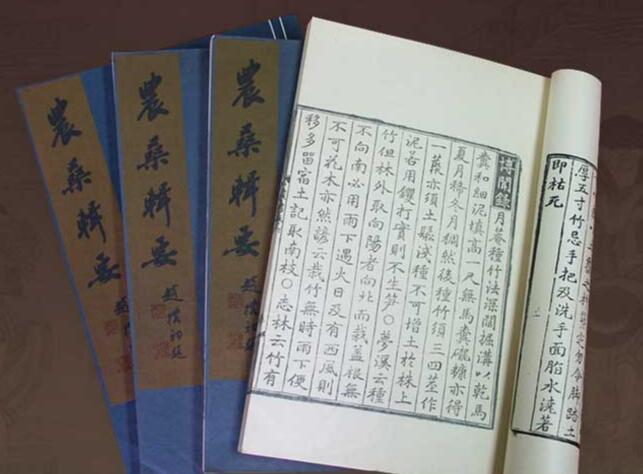 農桑輯要
農桑輯要
農桑輯要
勿令脚踏土
厚五寸竹忌手把及洗手面脂水澆著
即枯死
博聞錄月菴種竹法深闊掘溝以乾馬
糞和細泥填高一尺無馬糞礱糠亦得
夏月稀冬月稠然後種竹須三四莖作
一蔟亦須土鬆淺種不可增土於株上
泥若用钁打實則不生笋○夢溪云種
竹但林外取向陽者向北而栽蓋根無
不向南必用雨下遇火日及有西風則
不可花木亦然諺云栽竹無時雨下便
移多留宿土記取南枝○志林云竹有